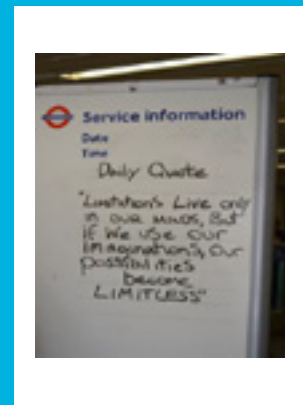 Service information
Date
Time
Daily Quote
"Limitation's Live only
in our minds, But
if We Use Our
Imaginations, Our
possibilities
become
LIMITLESS"